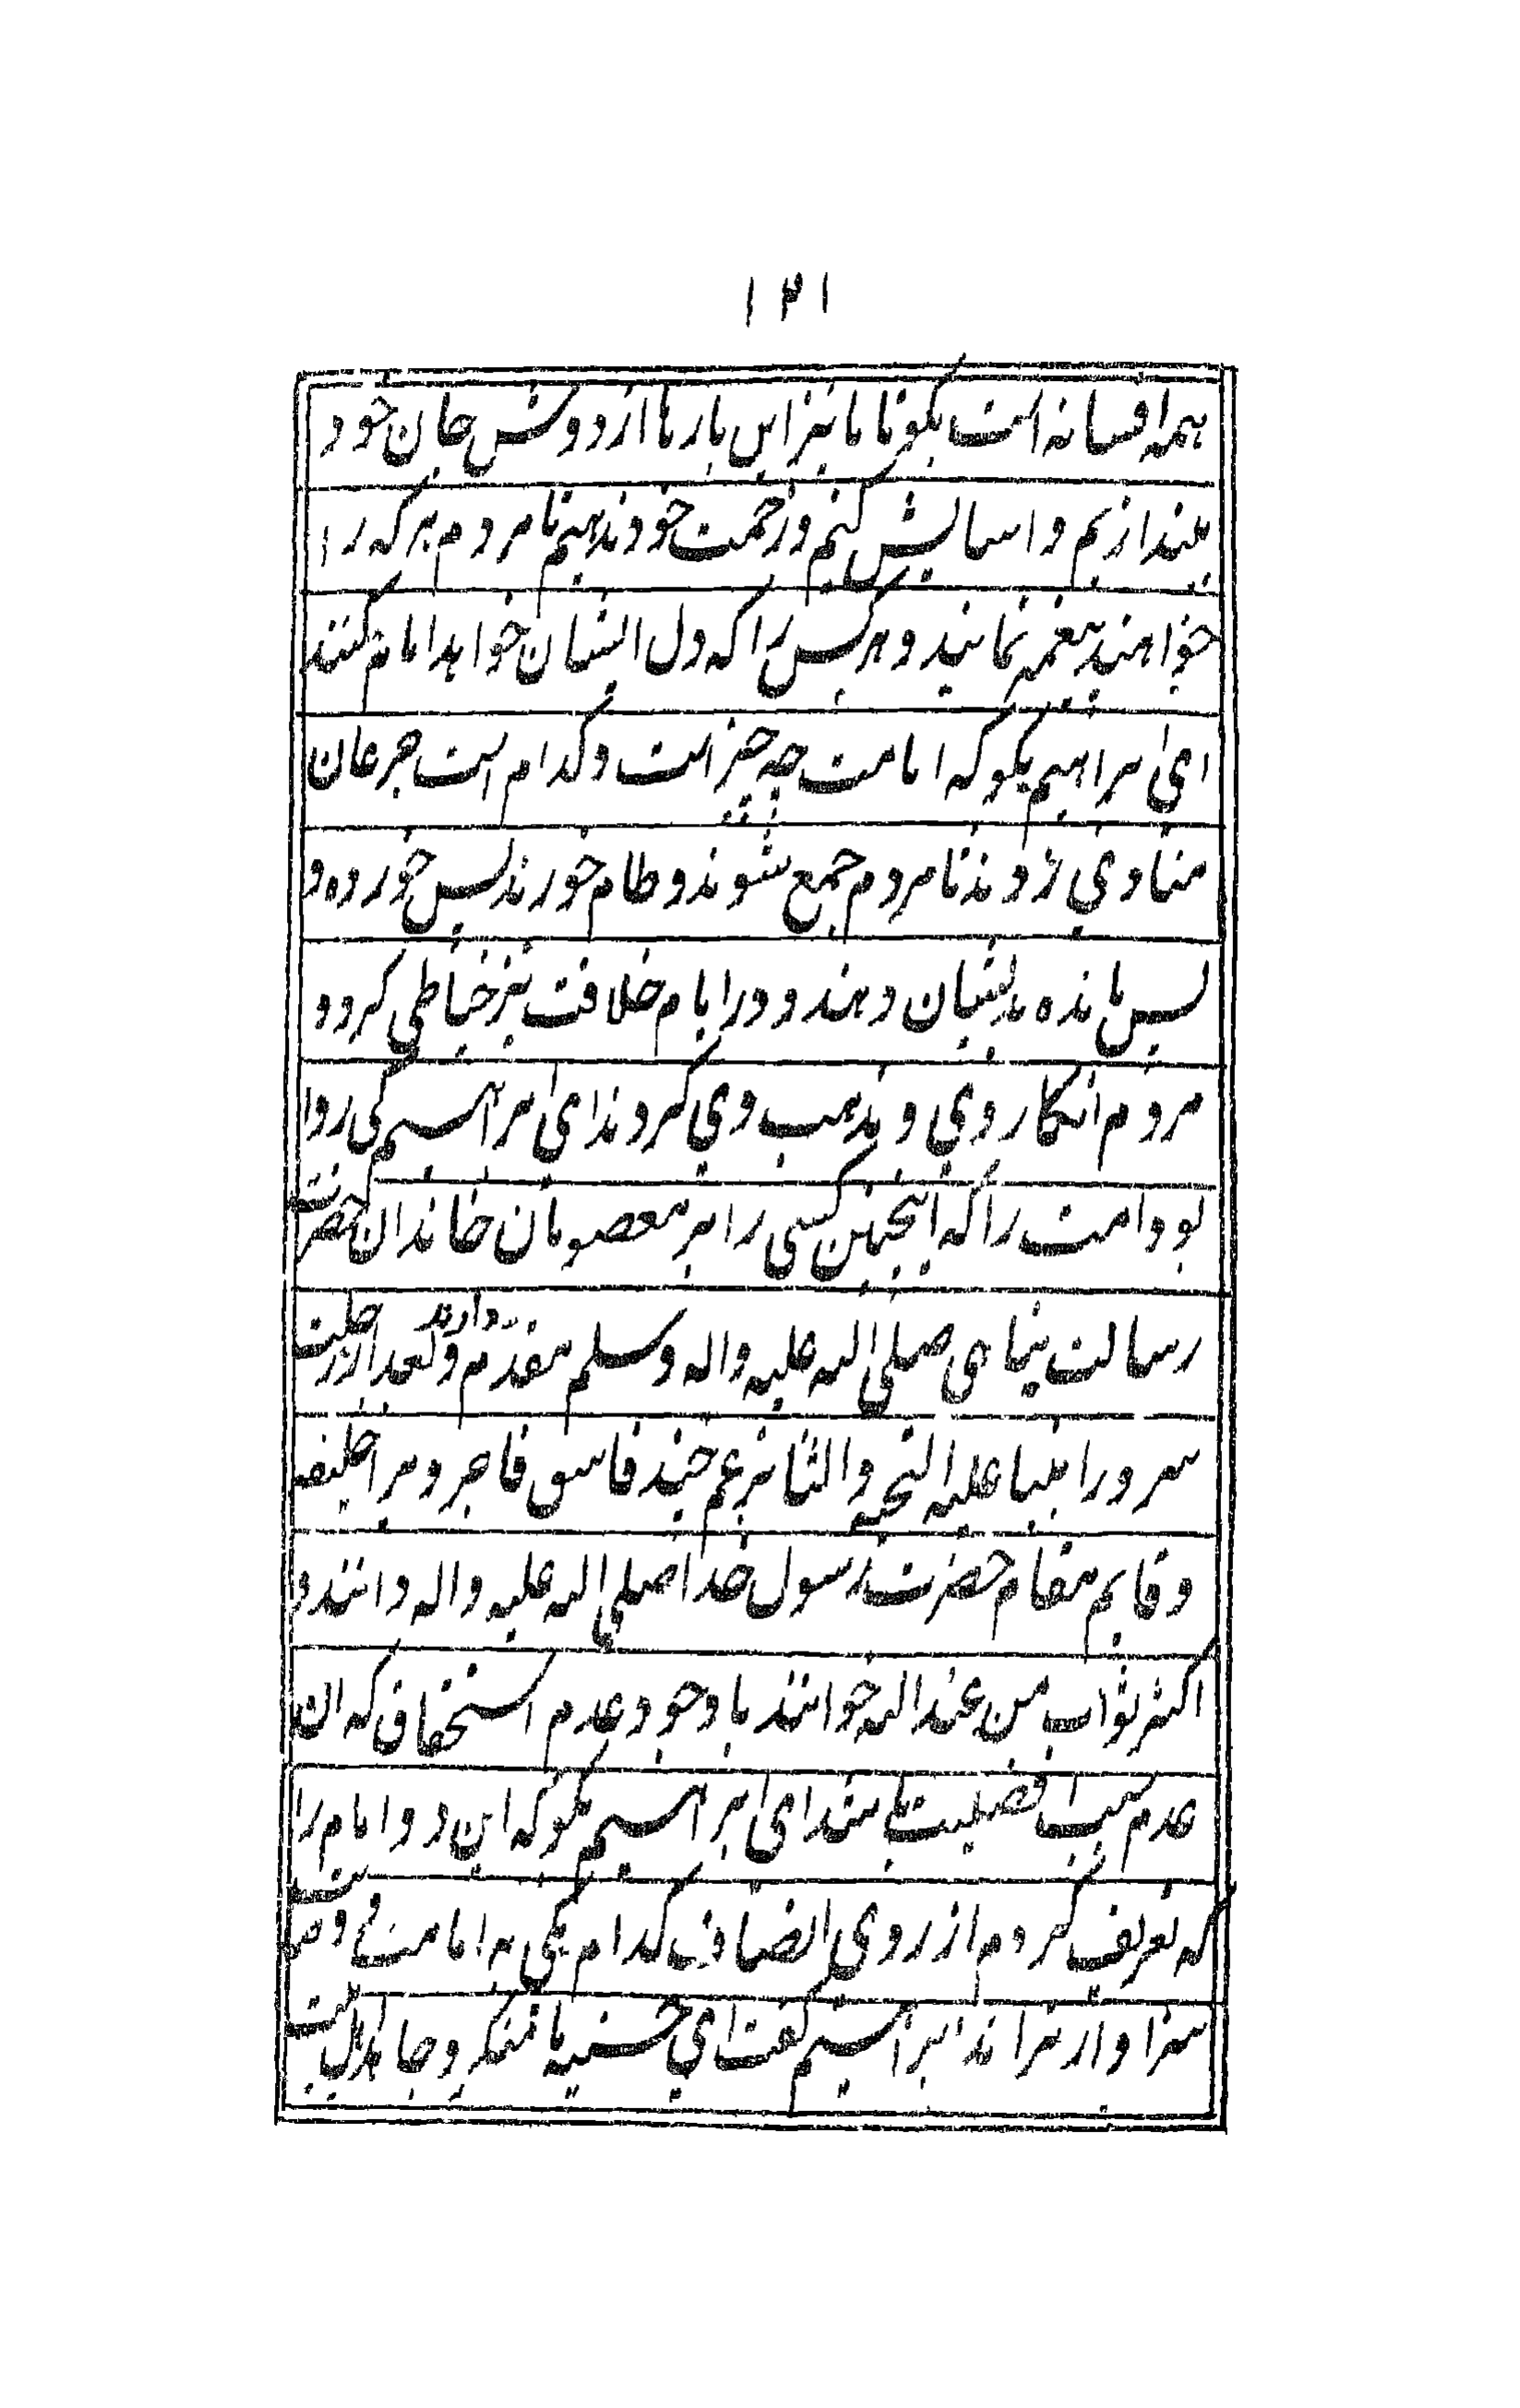 ۱۲۱
همه افسانه است بکو تا ما نیز این بارها از دوش جان خود
بیندازیم و اسایش کنیم و زحمت خود ندهیم تا مردم هر که را
خواهند پیغمبر نمایند و هرکس را که دل ایشان خواهد امام کنند
ای ابراهیم بکو که امامت چه چیز است و کدام است
منادی زدند تا مردم جمع شوند و طام خورند پس خورده و
پس مانده بدیشان دهند و در ایام خلافت نیز خیاطی کرده
مردم انکار وی و مذهب وی کردند ای ابراهیم کی روا
بود امت را که اینچنین کسی را بر معصومان خاندان حضرت
رسالت پناهی صلی الله علیه واله وسلم مقدم دارند و بعد از رحلت
سرور انبیا علیه التحیه والثنا بزعم چند فاسق فاجر ویرا خلیفه
و قایم مقام حضرت رسول خدا صلی الله علیه واله دانند و
اکثر ثواب من عند الله خوانند با وجود عدم استحقاق که ان
عدم سبب افضلیت باشد ای ابراهیم بکو که این دو امام را
که تعریف کردم از روی انصاف کدام یکی به امامت و
سزاوارتراند ابراهیم گفت ای حسنیه ما منکر و جاهد اهل بیت